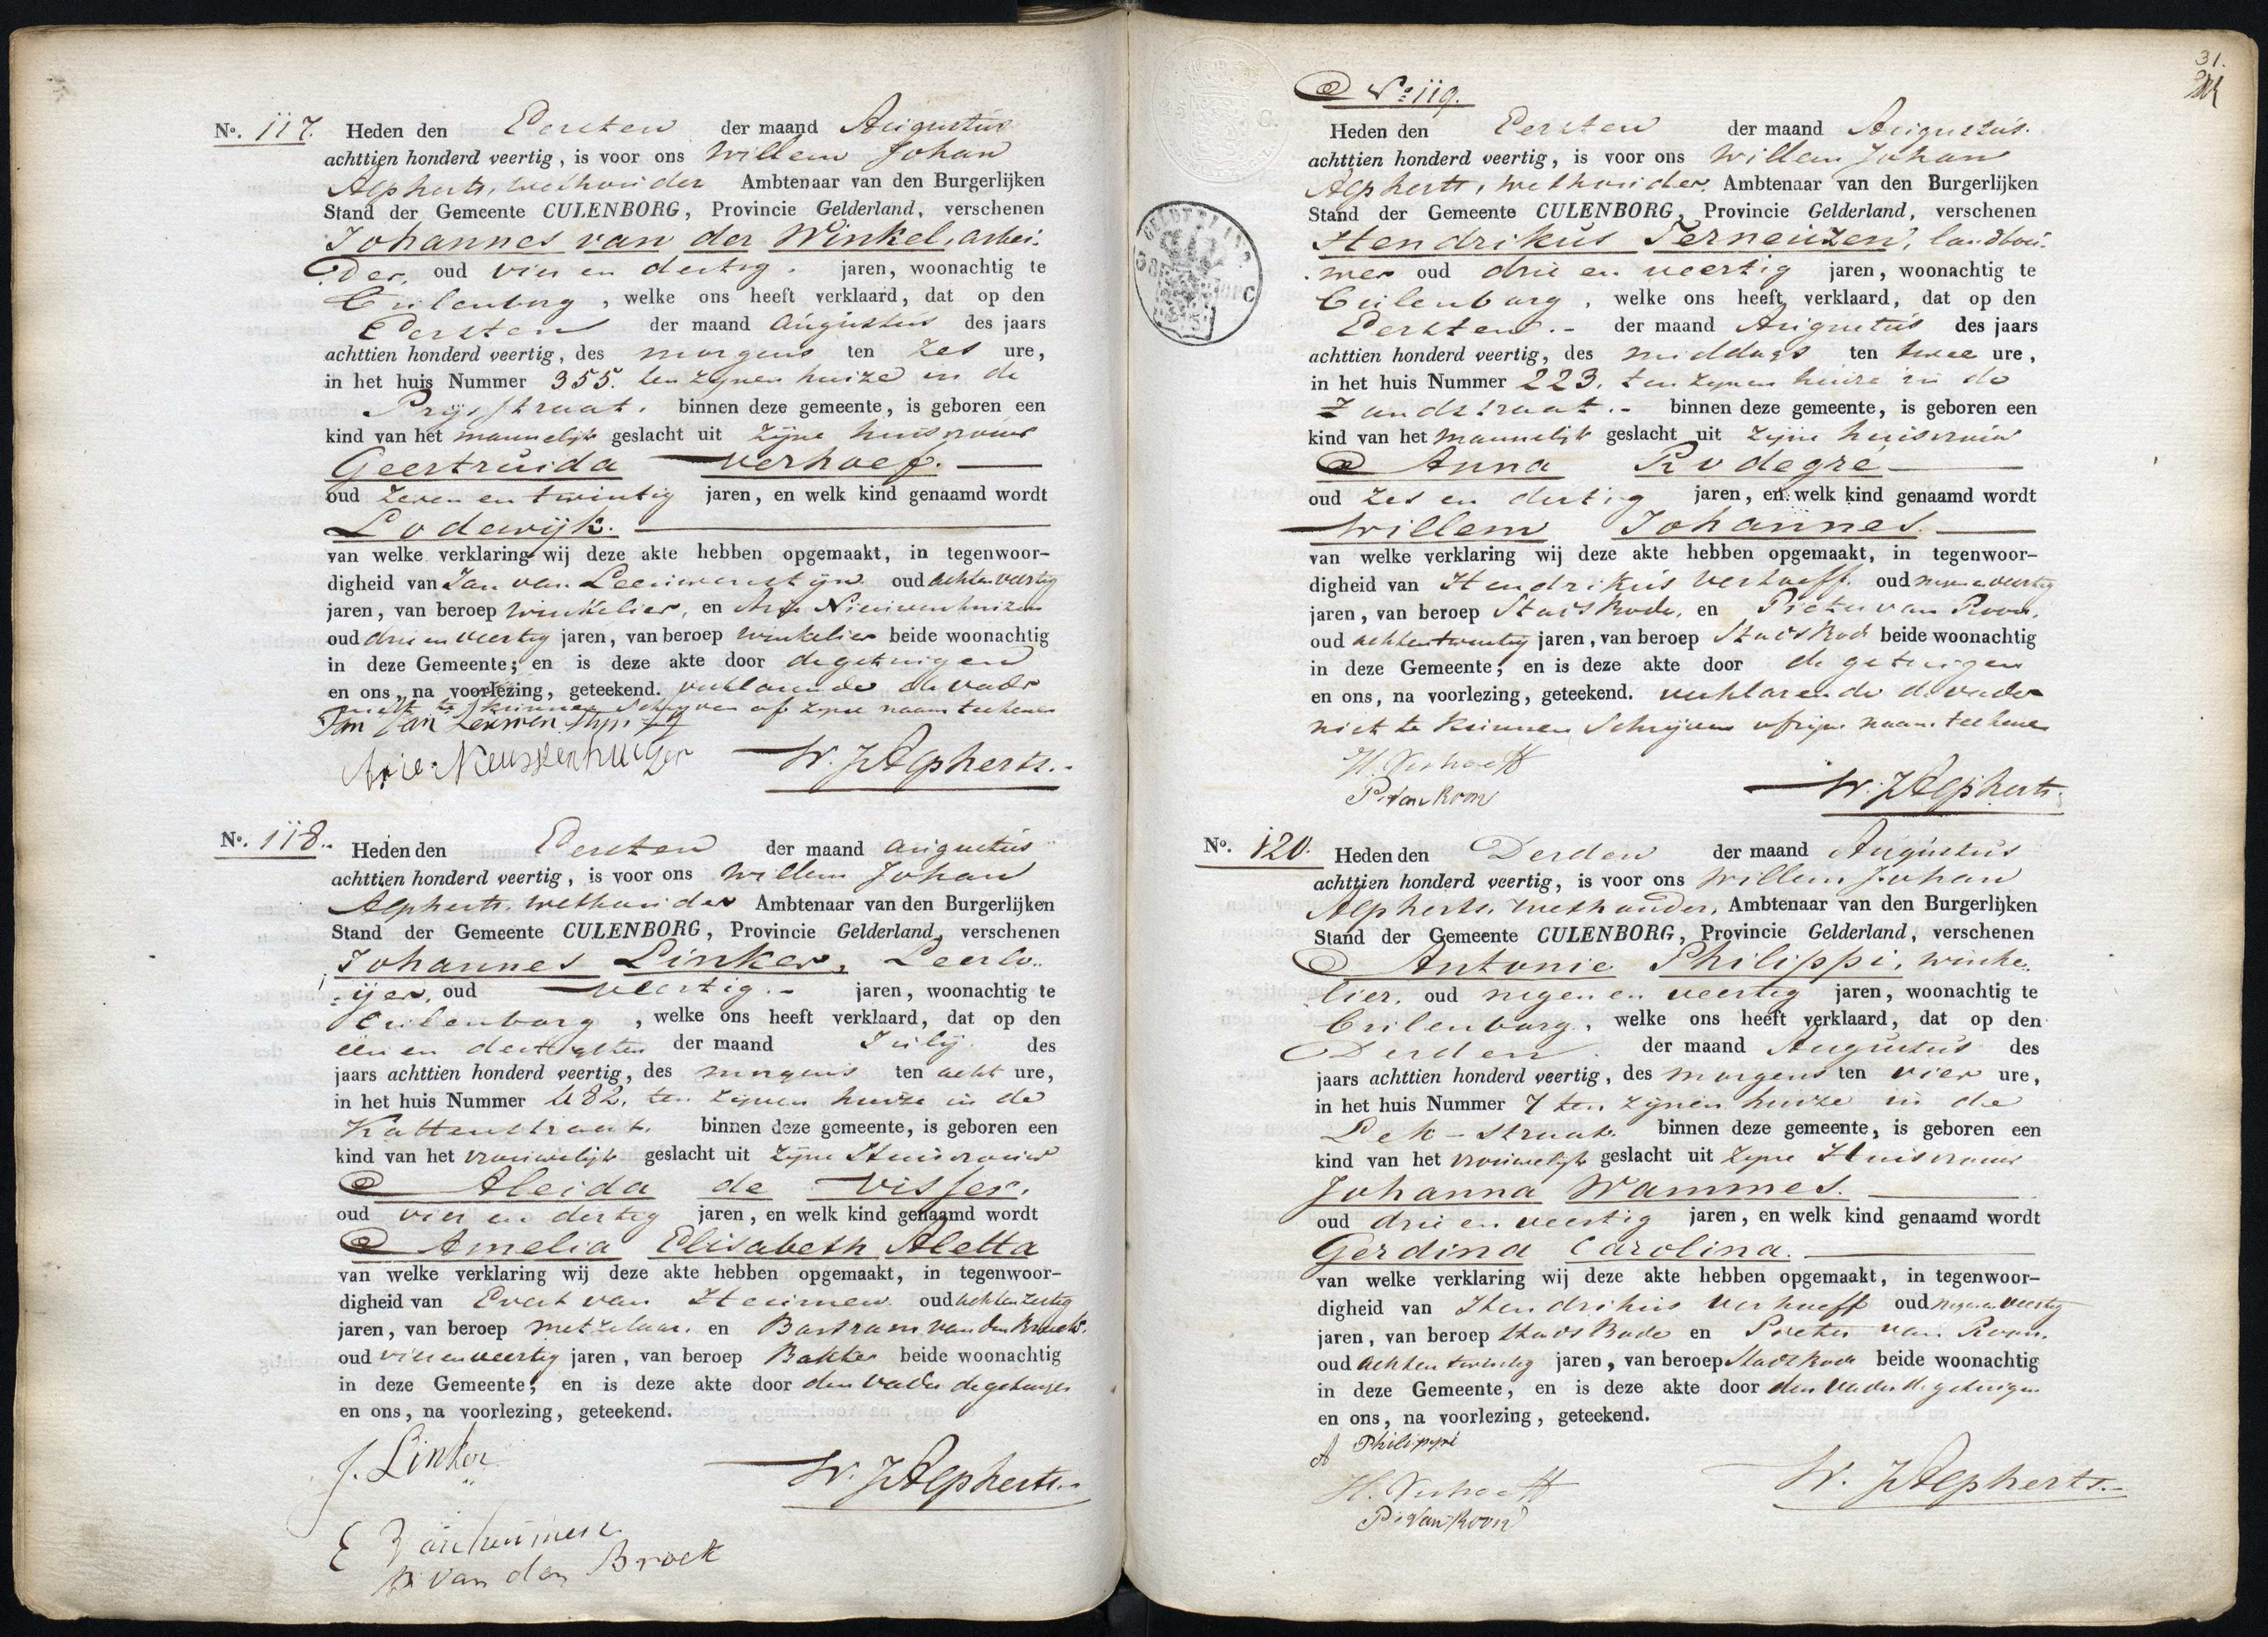 No. 117. Heden den Eersten der maand Augustus
achttien honderd veertig, is voor ons Willem Johan
Alpherts, wethouder Ambtenaar van den Burgerlijken
Stand der Gemeente CULENBORG, Provincie Gelderland, verschenen
Johannes van der Winkel, arbei-
der, oud vier en dertig jaren, woonachtig te
Culenborg, welke ons heeft verklaard, dat op den
Eersten der maand Augustus des jaars
achttien honderd veertig, des morgens ten zes ure,
in het huis Nummer 355. ten zijnen huize in de
Prijsstraat. binnen deze gemeente, is geboren een
kind van het mannelijk geslacht uit zijne huisvrouw
Geertruida Verhoef.
oud zeven en twintig jaren, en welk kind genaamd wordt
Lodewijk.
van welke verklaring wij deze akte hebben opgemaakt, in tegenwoor-
digheid van Jan van Leeuwenstijn oud achtenveertig
jaren, van beroep winkelier, en Arie Nieuwenhuizen
oud drie en veertig jaren, van beroep winkelier beide woonachtig
in deze Gemeente; en is deze akte door de getuigen
en ons, na voorlezing, geteekend. verklarende de vader
niet te kunnen schryven of zyne naam teekenen
Jan van Leeuwenstyn
Arie Nieuwenhuizen W. J. Alpherts.
No. 118. Heden den Eersten der maand augustus
achttien honderd veertig, is voor ons Willem Johan
Alpherts, wethouder Ambtenaar van den Burgerlijken
Stand der Gemeente CULENBORG, Provincie Gelderland, verschenen
Johannes Linker, Leerlo-
ijer, oud veertig jaren, woonachtig te
Culenborg, welke ons heeft verklaard, dat op den
een en dertigsten der maand July des
jaars achttien honderd veertig, des morgens ten acht ure,
in het huis Nummer 482, ten zijnen huize in de
Kattenstraat. binnen deze gemeente, is geboren een
kind van het vrouwelijk geslacht uit zijne Huisvrouw
Aleida de Visser.
oud vier en dertig jaren, en welk kind genaamd wordt
Amelia Elisabeth Aletta
van welke verklaring wij deze akte hebben opgemaakt, in tegenwoor-
digheid van Evert van Heumen oud achtenzestig
jaren, van beroep metzelaar, en Bartram van den Broek
oud vier en veertig jaren, van beroep Bakker beide woonachtig
in deze Gemeente; en is deze akte door den vader de getuigen
en ons, na voorlezing, geteekend.
J. Linker
W. J. Alpherts.
E van heumen
B van den Broek
31.
No. 119.
Heden den Eersten der maand Augustus.
achttien honderd veertig, is voor ons Willem Johan
Alpherts, wethouder, Ambtenaar van den Burgerlijken
Stand der Gemeente CULENBORG, Provincie Gelderland, verschenen
Hendrikus Terneuzen, landbou-
wer oud drie en veertig jaren, woonachtig te
Culenborg, welke ons heeft verklaard, dat op den
Eersten.- der maand Augustus des jaars
achttien honderd veertig, des middags ten twee ure,
in het huis Nummer 223, ten zynen huize in de
Zandstraat.- binnen deze gemeente, is geboren een
kind van het mannelijk geslacht uit zijne huisvrouw
Anna Rodegré
oud zes en dertig jaren, en welk kind genaamd wordt
Willem Johannes.
van welke verklaring wij deze akte hebben opgemaakt, in tegenwoor-
digheid van Hendrikus Verhoeff. oud negenenveertig
jaren, van beroep Stads Bode, en Pieter van Roon,
oud achtentwintig jaren, van beroep Stads Bode beide woonachtig
in deze Gemeente; en is deze akte door de getuigen
en ons, na voorlezing, geteekend. verklarende de vader
niet te kunnen Schrijven of zyn naam teekenen
H. Verhoeff
P. van Roon
W. J. Alpherts.
No. 120. Heden den Derden der maand Augustus
achttien honderd veertig, is voor ons Willem Johan
Alpherts, wethouder, Ambtenaar van den Burgerlijken
Stand der Gemeente CULENBORG, Provincie Gelderland, verschenen
Antonie Philippi, winke-
lier, oud negen en veertig jaren, woonachtig te
Culenborg, welke ons heeft verklaard, dat op den
Derden. der maand Augustus des
jaars achttien honderd veertig, des morgens ten vier ure,
in het huis Nummer 7 ten zijnen huize in de
Lek-Straat. binnen deze gemeente, is geboren een
kind van het vrouwelijk geslacht uit zyne Huisvrouw
Johanna Wammes.
oud drie en veertig jaren, en welk kind genaamd wordt
Gerdina Carolina.
van welke verklaring wij deze akte hebben opgemaakt, in tegenwoor-
digheid van Hendrikus Verhoeff oud negenenveertig
jaren, van beroep Stads Bode en Pieter van Roon.
oud achtentwintig jaren, van beroep Stads Bode beide woonachtig
in deze Gemeente, en is deze akte door den vader de getuigen
en ons, na voorlezing, geteekend.
A Philippi
H. Verhoeff
P. van Roon
W. J. Alpherts.